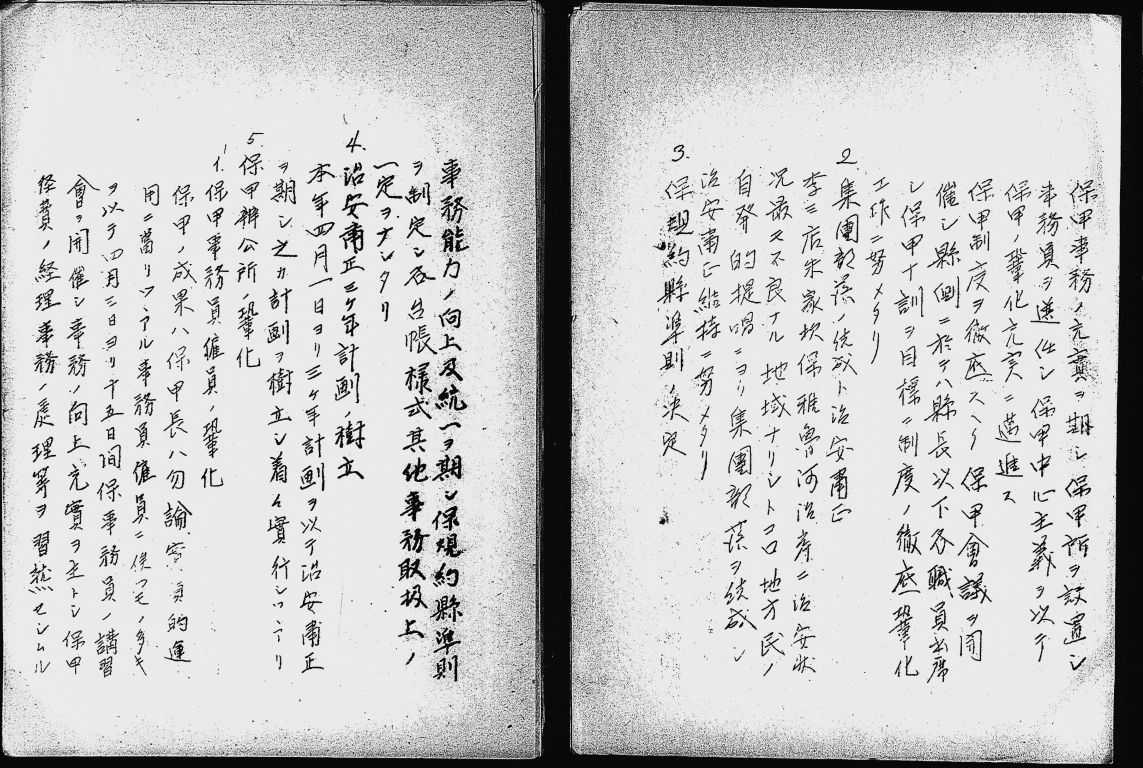 保甲事務ノ充實ヲ期シ保甲所ヲ設置シ
事務員ヲ選任シ保甲中心主義ヲ以テ
保甲ノ鞏化充実ニ邁進ス
保甲制度ヲ徹底スヘク保甲會議ヲ開
催シ縣側ニ於テハ縣長以下各職員出席
シ保甲十訓ヲ目標ニ制度ノ徹底鞏化
工作ニ努メタリ
2 集團部落ノ結成ト治安粛正
李三店朱家坎保雅魯河沿岸ニ治安狀
況最モ不良ナル地域ナリシトコロ地方民ノ
自発的提唱ニヨリ集團部落ヲ結成シ
治安粛正維持ニ努メタリ
3. 保規約縣準則ノ決定
事務能力ノ向上及統一ヲ期シ保規約縣準則
ヲ制定シ各台帳様式其他事務取扱上ノ
一定ヲナシタリ
4. 治安粛正三ケ年計劃ノ樹立
本年四月一日ヨリ三ケ年計劃ヲ以テ治安粛正
ヲ期シ之カ計劃ヲ樹立シ着々實行シツツアリ
5. 保甲辦公所ノ鞏化
1. 保甲事務員雇員ノ鞏化
保甲ノ成果ハ保甲長ハ勿論實員的運
用ニ當リツツアル事務員雇員ニ俟ツモノ多キ
ヲ以テ四月三日ヨリ十五日間保事務員ノ講習
會ヲ開催シ事務ノ向上充實ヲ主トシ保甲
経費ノ経理事務ノ處理等ヲ習熟セシムル